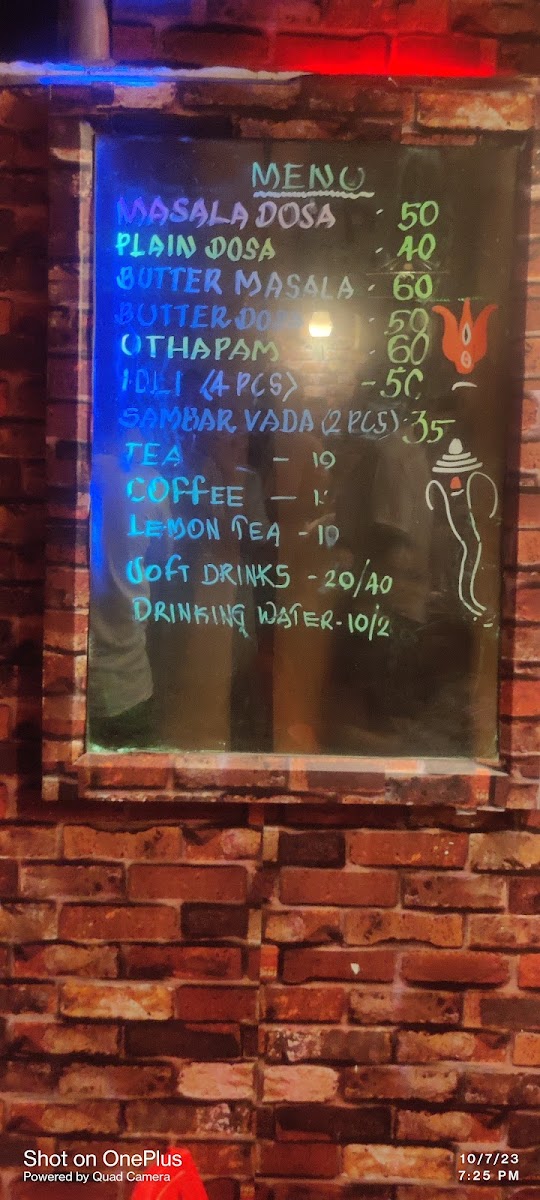 MENU
MASALA DOSA - 50
PLAIN DOSA - 40
BUTTER MASALA - 60
BUTTER DOSA - 50
UTHAPAM - 60
IDLI (4 PCS) - 50
SAMBAR VADA (2 PCS) - 35
TEA - 10
COFFEE -
LEMON TEA - 10
SOFT DRINKS - 20/40
DRINKING WATER - 10/2
Shot on OnePlus
Powered by Quad Camera
10/7/23
7:25 PM